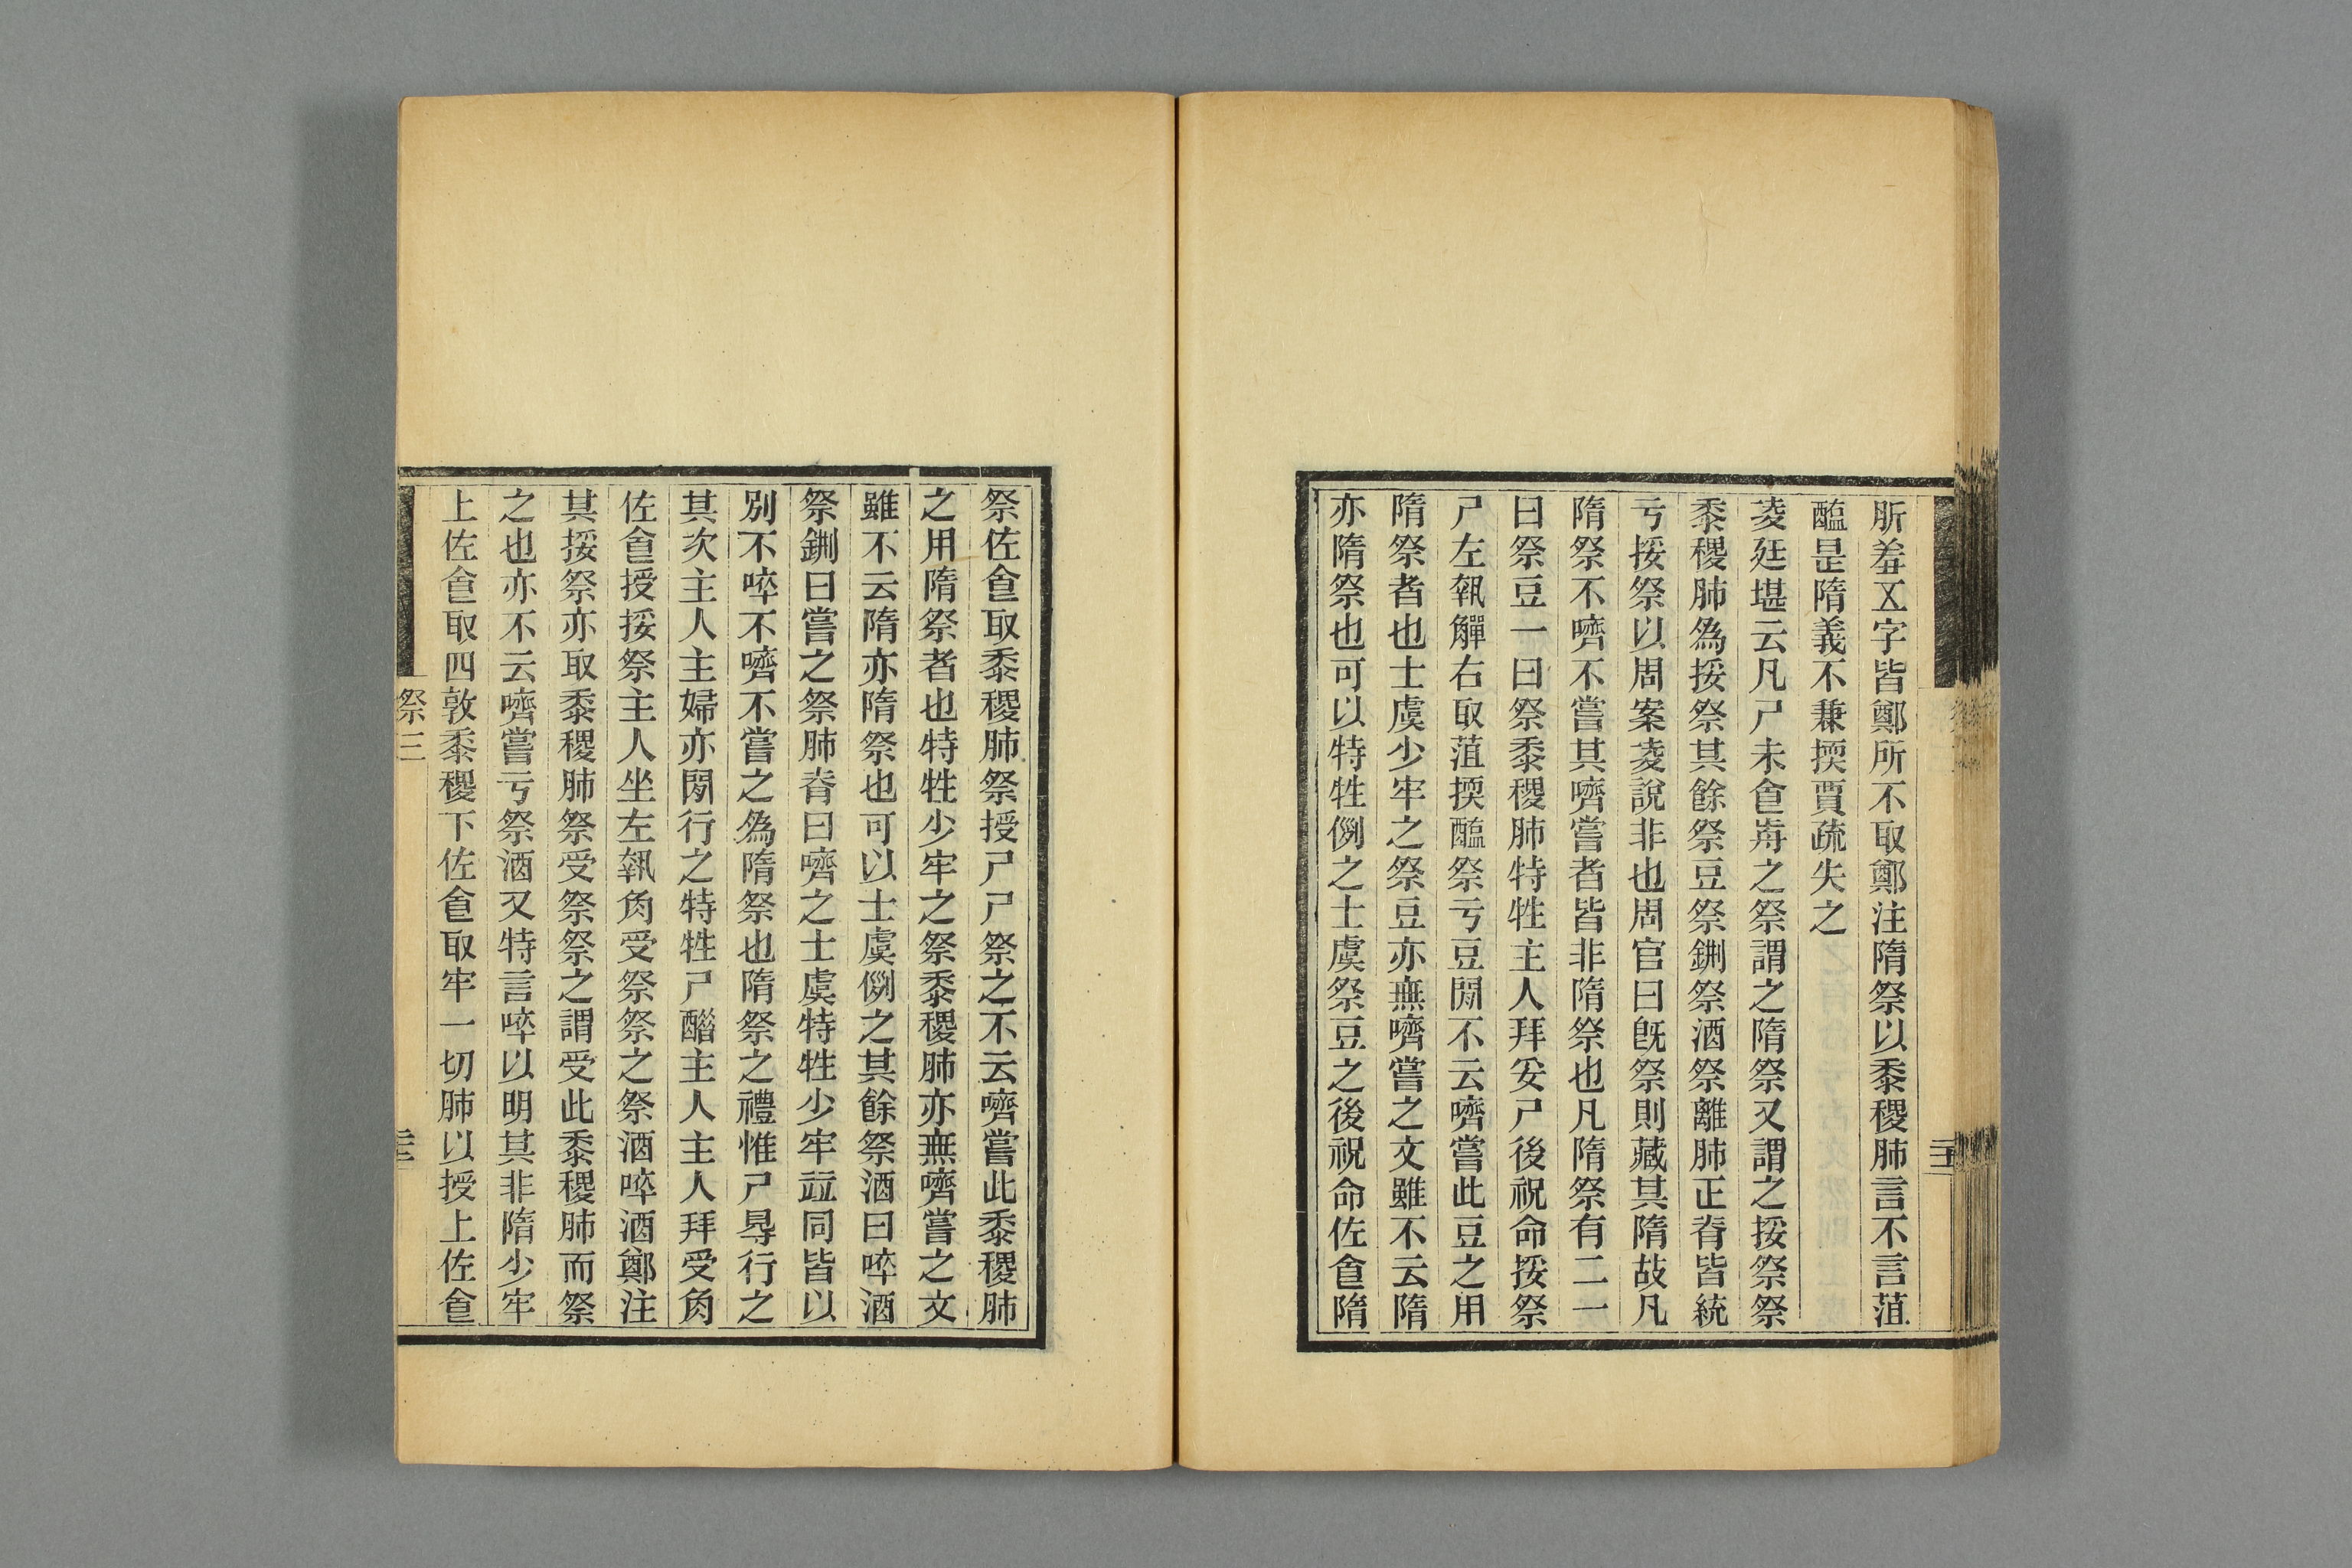 肵羞五字皆鄭所不取鄭注隋祭以黍稷肺言不言菹
醢是隋義不兼擩賈疏失之
凌廷堪云凡尸未食歬之祭謂之隋祭又謂之挼祭祭
黍稷肺為挼祭其餘祭豆祭鉶祭酒祭離肺正脊皆統
亏挼祭以周案凌說非也周官曰旣祭則藏其隋故凡
隋祭不嚌不嘗其嚌嘗者皆非隋祭也凡隋祭有二一
曰祭豆一曰祭黍稷肺特牲主人拜妥尸後祝命挼祭
尸左執觶右取菹擩醢祭亏豆閒不云嚌嘗此豆之用
隋祭者也士虞少牢之祭豆亦無嚌嘗之文雖不云隋
亦隋祭也可以特牲例之士虞祭豆之後祝命佐食隋
祭佐食取黍稷肺祭授尸尸祭之不云嚌嘗此黍稷肺
之用隋祭者也特牲少牢之祭黍稷肺亦無嚌嘗之文
雖不云隋亦隋祭也可以士虞例之其餘祭酒曰啐酒
祭鉶曰嘗之祭肺脊曰嚌之士虞特牲少牢竝同皆以
別不啐不嚌不嘗之為隋祭也隋祭之禮惟尸㝵行之
其次主人主婦亦閒行之特牲尸醋主人主人拜受角
佐食授挼祭主人坐左執角受祭祭之祭酒啐酒鄭注
其挼祭亦取黍稷肺祭受祭祭之謂受此黍稷肺而祭
之也亦不云嚌嘗亏祭酒又特言啐以明其非隋少牢
上佐食取四敦黍稷下佐食取牢一切肺以授上佐食
祭三